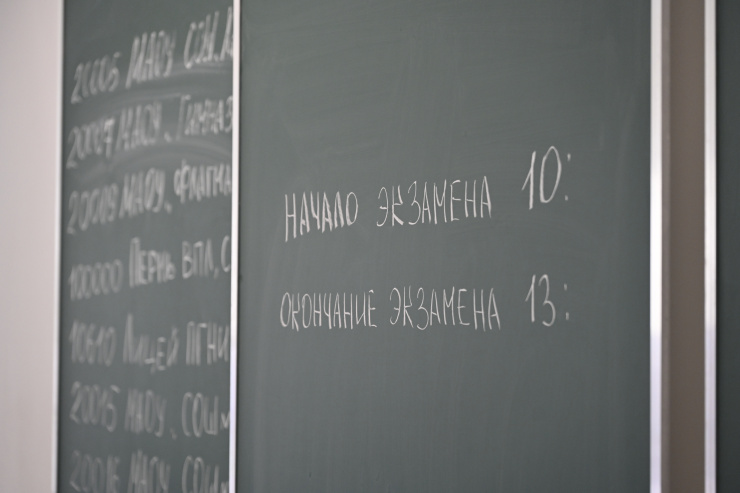 20005 МАОУ СОШ
МАОУ "Гимназ
МАОУ "Фрагма
100000 Пермь ВПЛ, С
10610 Лицей ПГНИ
20015 МАОУ "СОШ
МАОУ "СОШ
НАЧАЛО ЭКЗАМЕНА 10:
ОКОНЧАНИЕ ЭКЗАМЕНА 13: